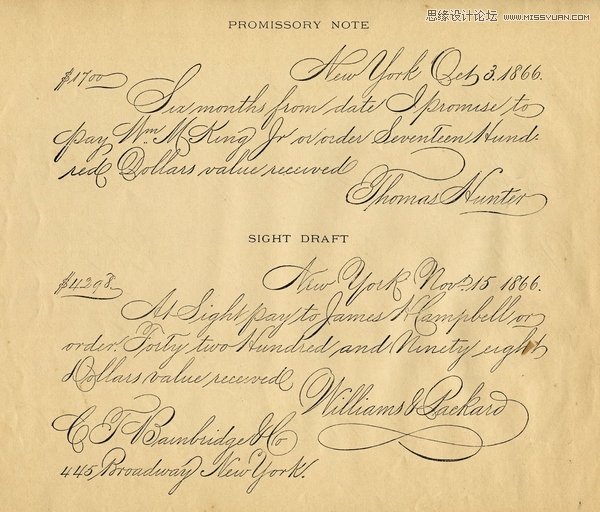 思缘设计论坛 WWW.MISSYUAN.COM
PROMISSORY NOTE
$1700 New York Oct 3. 1866.
Six months from date I promise to
pay Wm. M King Jr or order Seventeen Hund-
red Dollars value received
Thomas Hunter
SIGHT DRAFT
$4298. New York Nov. 15 1866.
At Sight pay to James H Campbell or
order Forty two Hundred and Ninety eight
Dollars value received
Williams & Packard
C T Bainbridge & Co
445 Broadway New York.